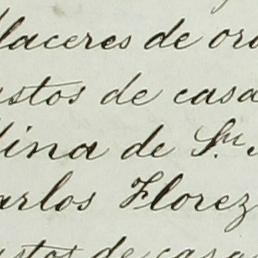 laceres de oro
stos de casa
ina de Sn.
arlos Florez
stos de casa